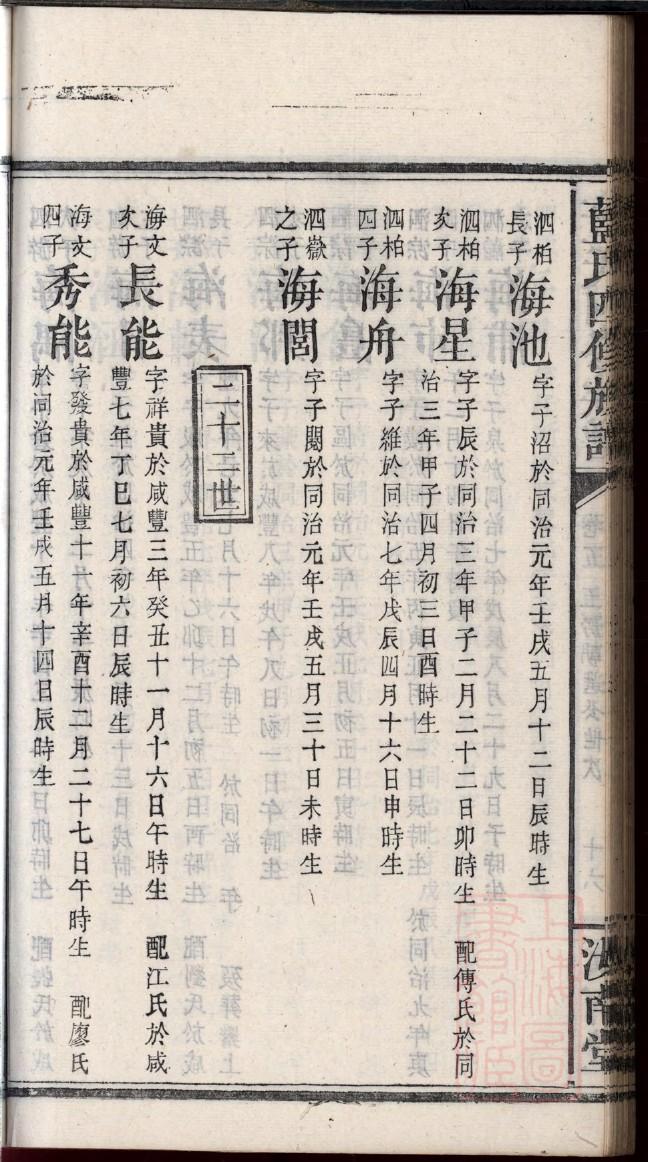 藍氏四修族譜
汝南堂
泗柏長子 海池 字子沼於同治元年壬戌五月十二日辰時生
泗柏次子 海星 字子辰於同治三年甲子二月二十二日卯時生 配傅氏於同
治三年甲子四月初三日酉時生
泗柏四子 海舟 字子維於同治七年戊辰四月十六日申時生
泗嶽之子 海閭 字子闊於同治元年壬戌五月三十日未時生
二十三世
海文次子 長能 字祥貴於咸豐三年癸丑十一月十六日午時生 配江氏於咸
豐七年丁巳七月初六日辰時生
海文四子 秀能 字發貴於咸豐十一年辛酉十二月二十七日午時生 配廖氏
於同治元年壬戌五月十四日辰時生